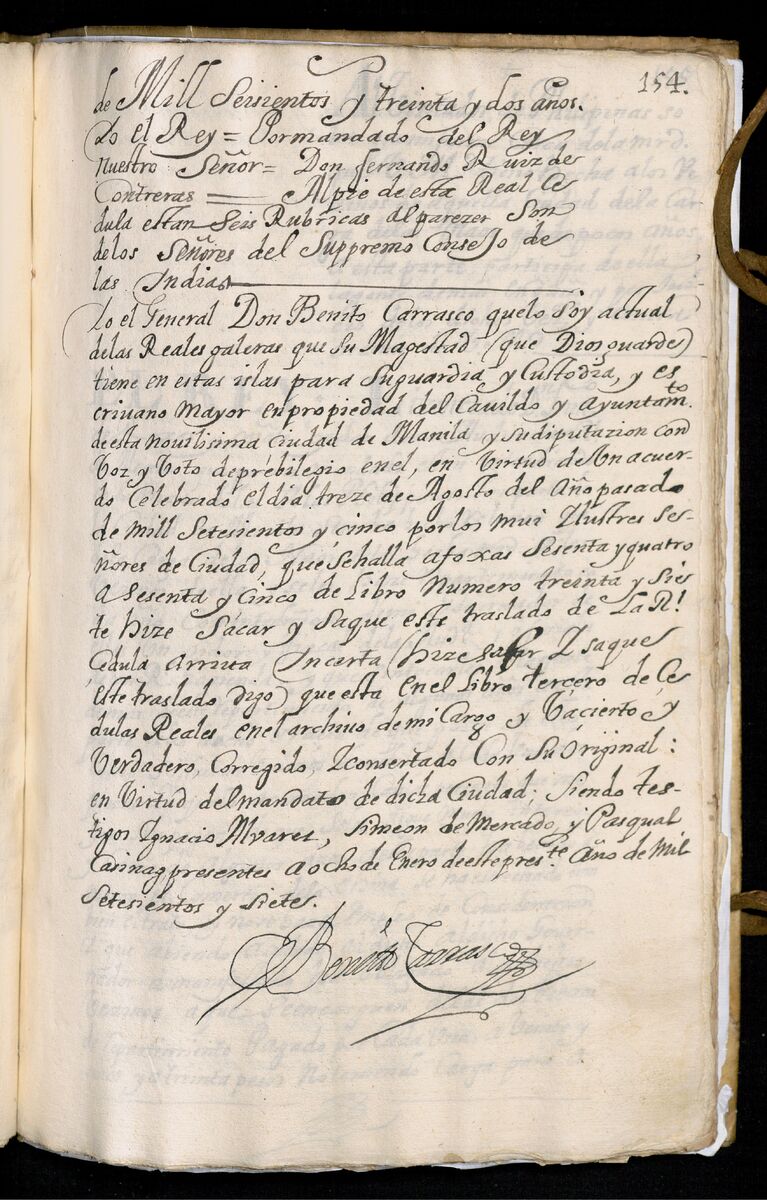 154.
de Mill Seisientos y treinta y dos años.
Yo el Rey = Pormandado del Rey
nuestro Señor = Don fernando Ruiz de
Contreras = Alpie de esta Real Ce
dula estan Seis Rubricas al parezer Son
delos Señores del Suppremo Consejo de
las Indias
Yo el General Don Benito Carrasco quelo soy actual
delas Reales galeras que Su Magestad (que Dios guarde)
tiene en estas islas para Suguardia y Custodia, y es
crivano Mayor enpropiedad del Cavildo y Ayuntamto.
de esta novilisima ciudad de Manila y sudiputazion con
Voz y Voto deprebilegio enel, en Virtud de Un acuer-
do Celebrado eldia treze de Agosto del Año pasado
de mill Setesientos y cinco porlos mui Ilustres Se-
ñores de Ciudad, que Sehalla afoxas Sesenta y quatro
a Sesenta y Cinco de Libro Numero treinta y Sie
te hize Sacar y Saque este traslado de La Rl
Cedula arriva Incerta (hize sacar Y saque
este traslado digo) que esta en el Libro tercero de Ce
dulas Reales enel archivo de mi Cargo y Vacierto y
Verdadero, Corregido, Yconsertado Con Su Original:
en Virtud delmandato de dicha Ciudad; Siendo tes-
tigos Ignacio Alvares, Simeon de Mercado, y Pasqual
Carinag presentes a ocho de Enero de este preste Año de Mil
Setesientos y Sietes.
Benito Carrasco